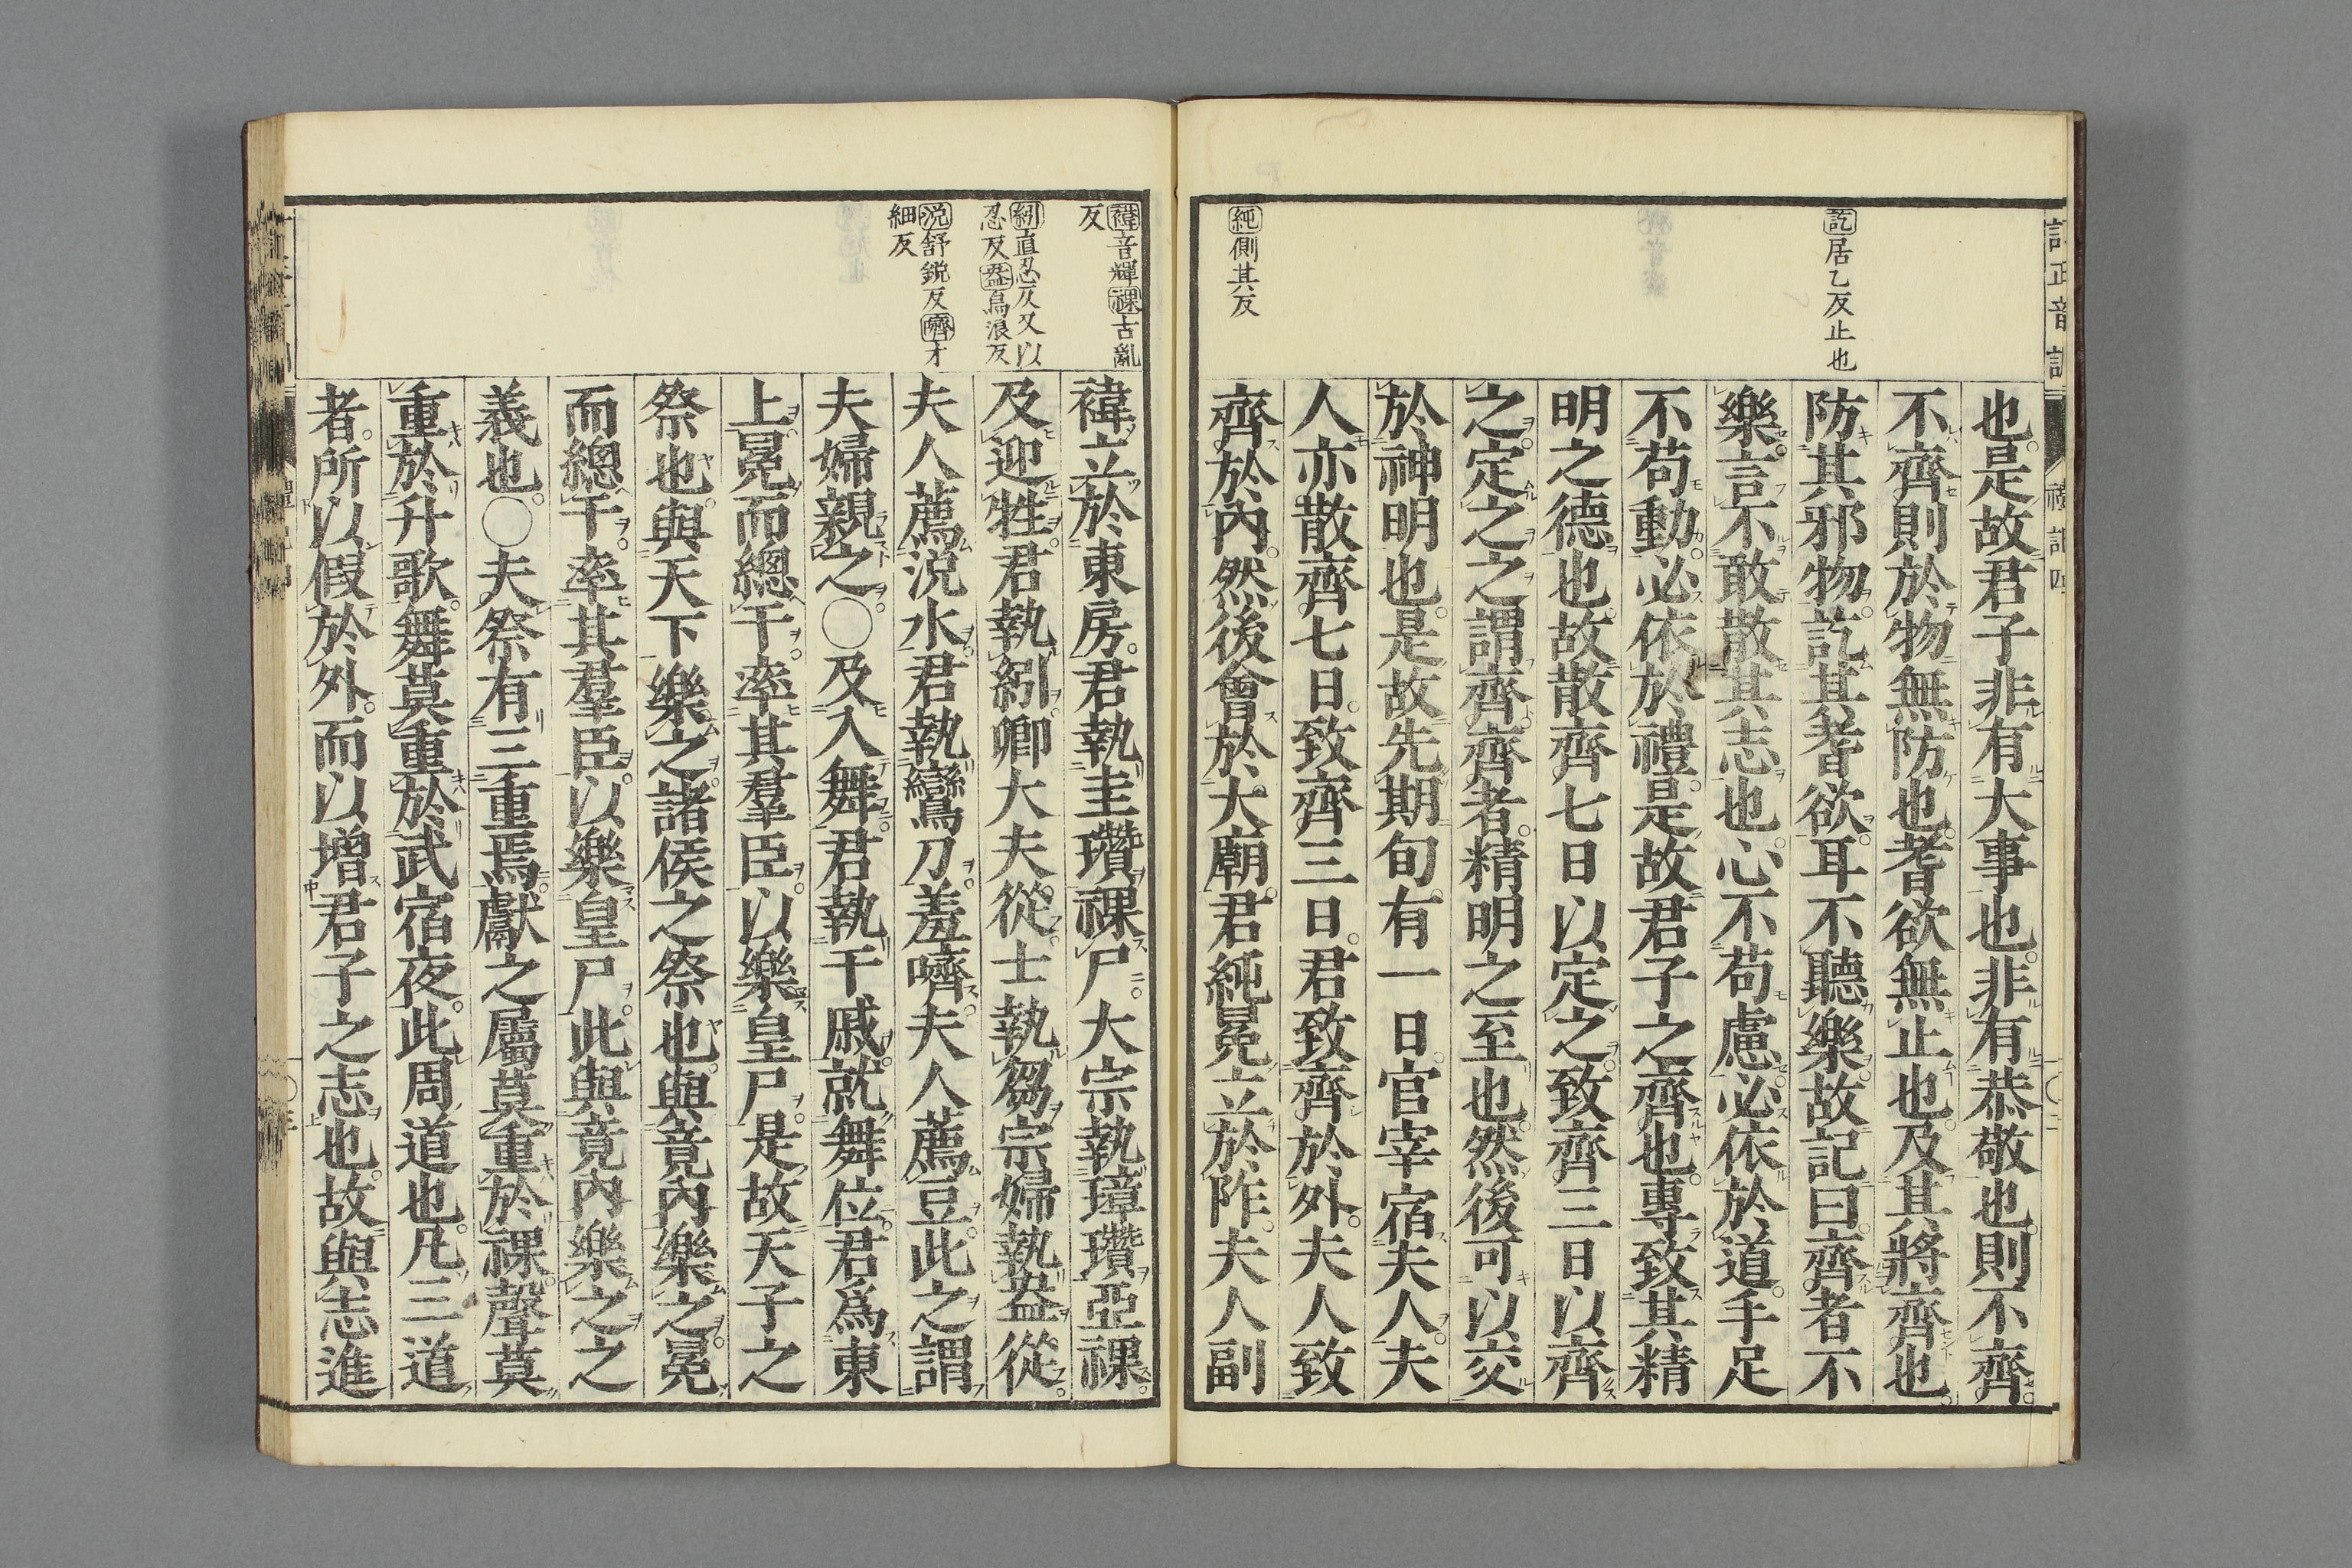 訖居乙反止也
純側其反
也是故君子非有大事也非有恭敬也則不齊
不齊則於物無防也耆欲無止也及其將齊也
防其邪物訖其耆欲耳不聽樂故記曰齊者不
樂言不敢散其志也心不苟慮必依於道手足
不苟動必依於禮是故君子之齊也專致其精
明之德也故散齊七日以定之致齊三日以齊
之定之之謂齊齊者精明之至也然後可以交
於神明也是故先期旬有一日官宰宿夫人夫
人亦散齊七日致齊三日君致齊於外夫人致
齊於內然後會於大廟君純冕立於阼夫人副
褘音輝祼古亂
反
紖直忍反又以
忍反盎烏浪反
涗舒銳反嚌才
細反
褘立於東房君執圭瓚祼尸大宗執璋瓚亞祼
及迎牲君執紖卿大夫從士執芻宗婦執盎從
夫人薦涗水君執鸞刀羞嚌夫人薦豆此之謂
夫婦親之○及入舞君執干戚就舞位君爲東
上冕而總干率其羣臣以樂皇尸是故天子之
祭也與天下樂之諸侯之祭也與竟內樂之冕
而總干率其羣臣以樂皇尸此與竟內樂之之
義也○夫祭有三重焉獻之屬莫重於祼聲莫
重於升歌舞莫重於武宿夜此周道也凡三道
者所以假於外而以增君子之志也故與志進